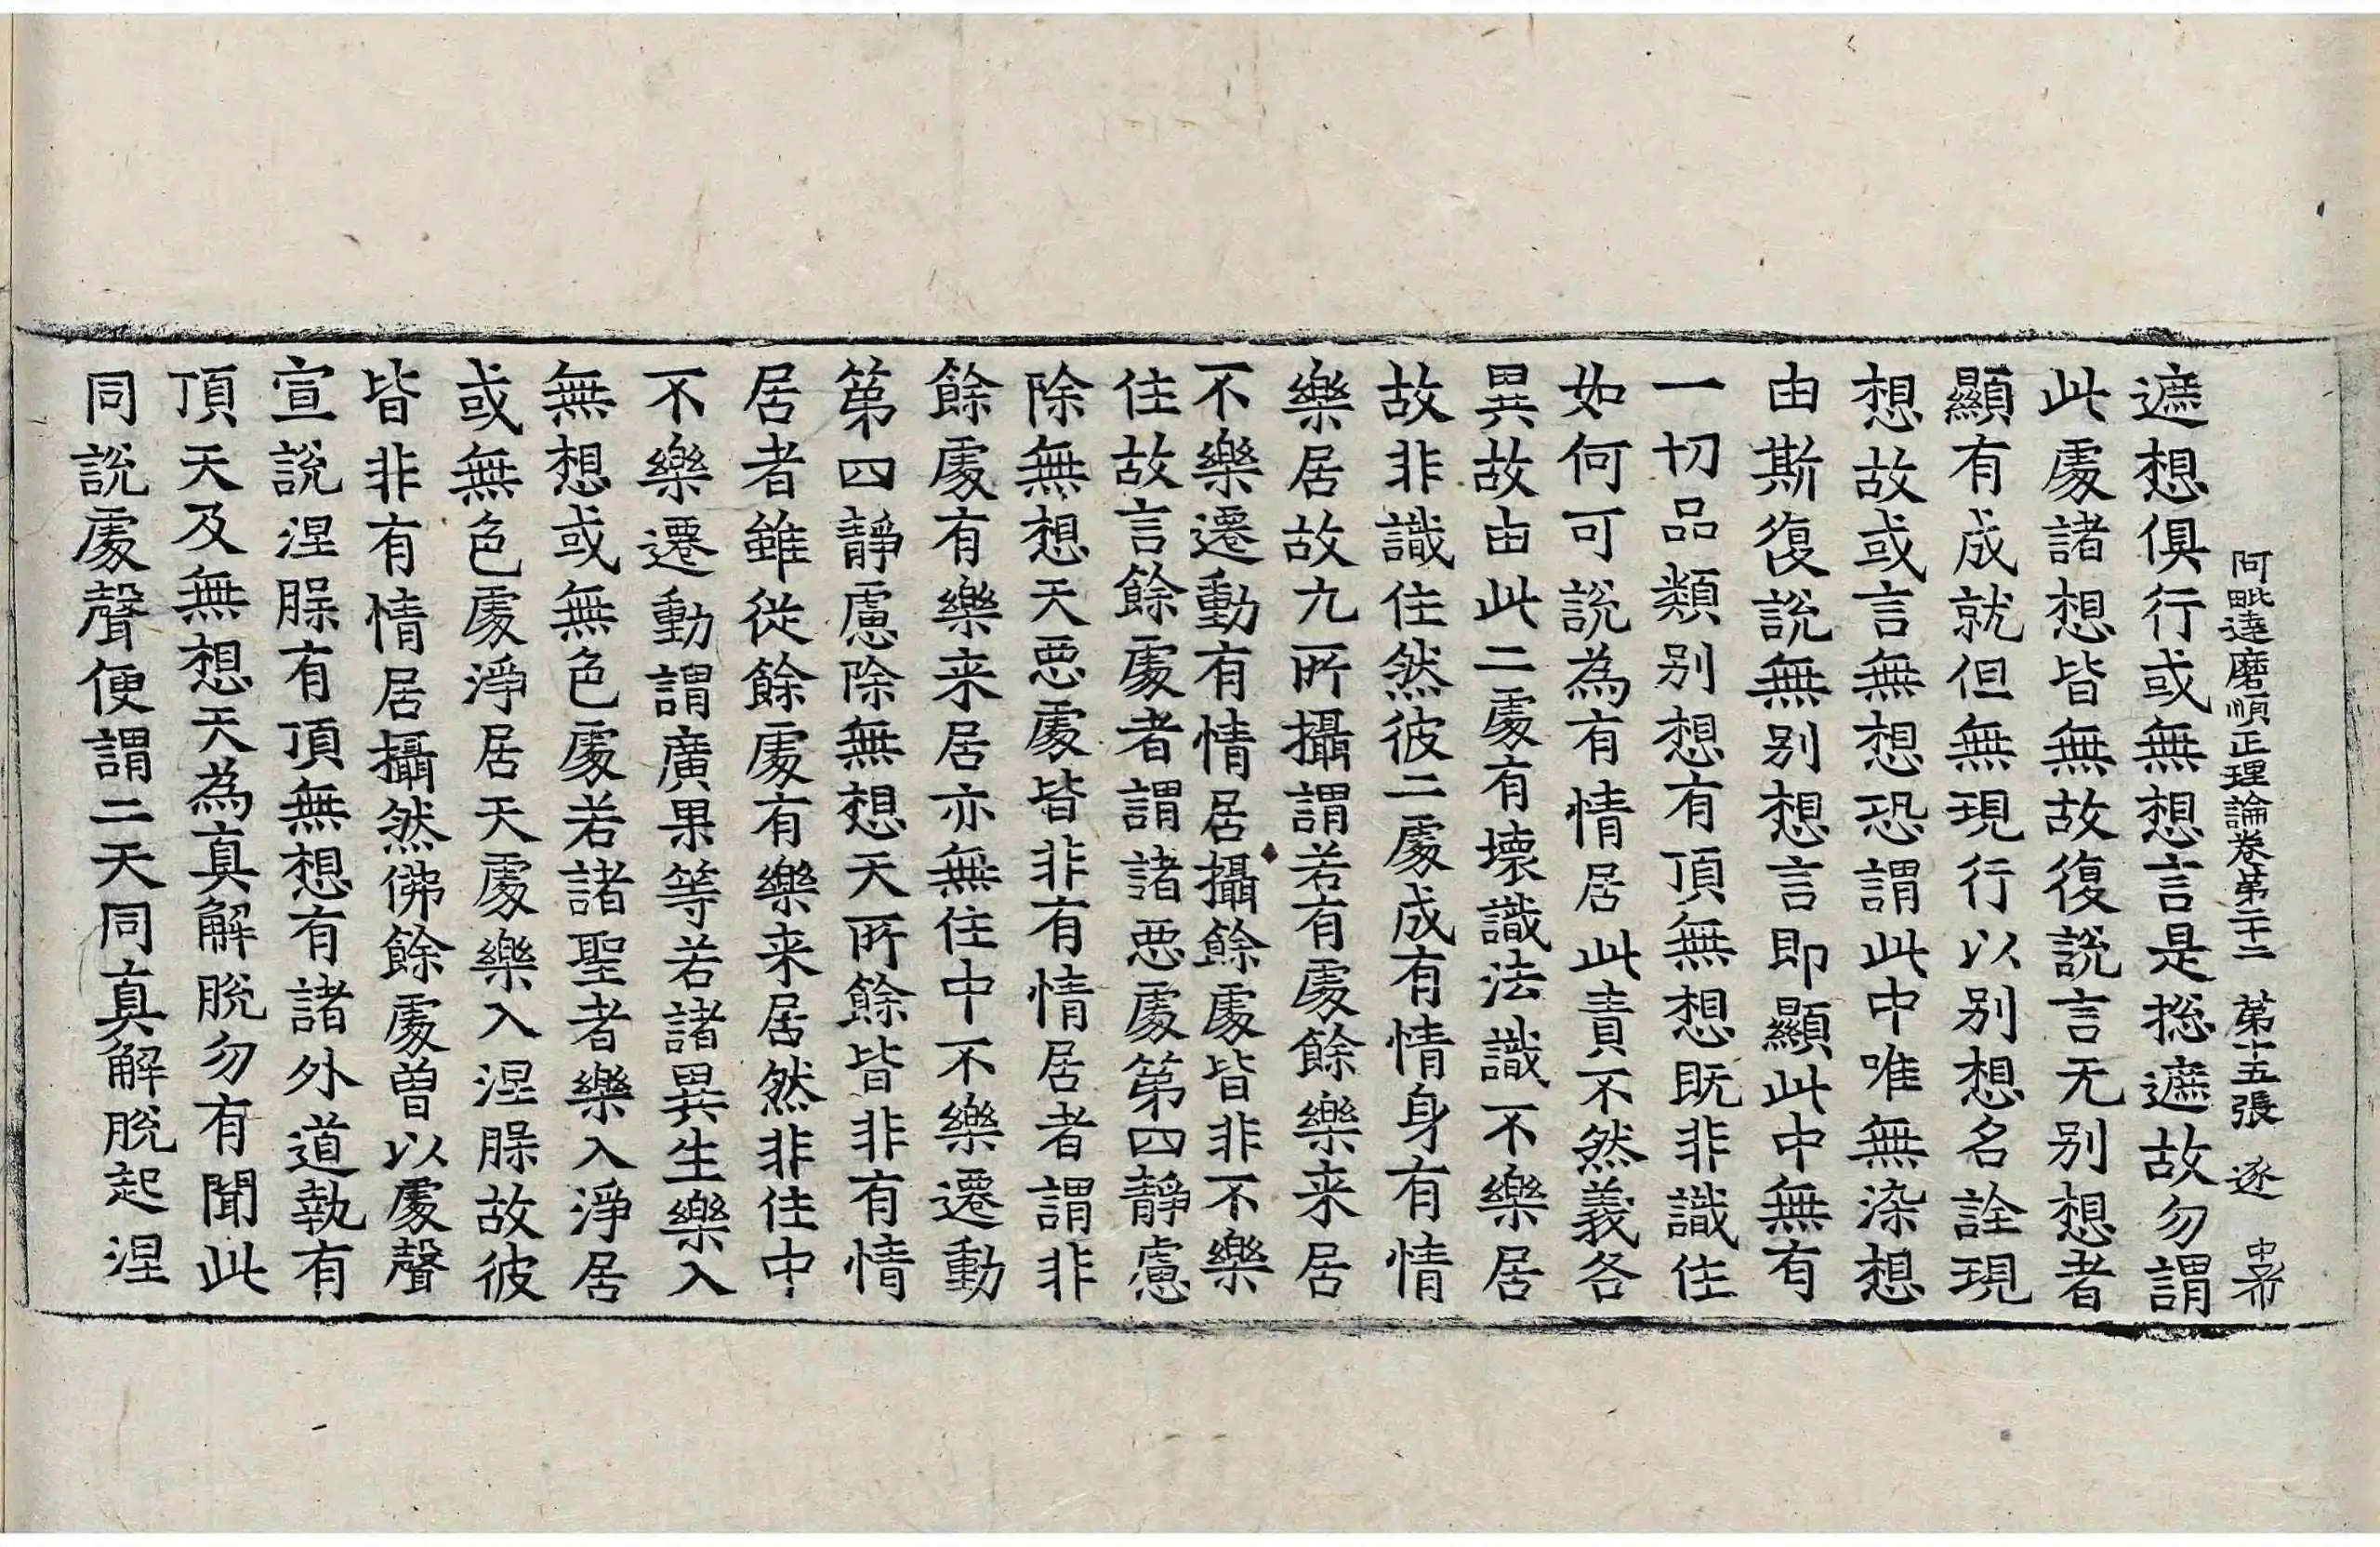 阿毗達磨順正理論卷第二十二 第十五張 逐 中希
遮想俱行或無想言是揔遮故勿謂
此處諸想皆無故復說言无別想者
顯有成就但無現行以別想名詮現
想故或言無想恐謂此中唯無染想
由斯復說無別想言即顯此中無有
一切品類別想有頂無想既非識住
如何可說為有情居此責不然義各
異故由此二處有壞識法識不樂居
故非識住然彼二處成有情身有情
樂居故九所攝謂若有處餘樂来居
不樂遷動有情居攝餘處皆非不樂
住故言餘處者謂諸惡處第四靜慮
除無想天惡處皆非有情居者謂非
餘處有樂来居亦無住中不樂遷動
第四靜慮除無想天所餘皆非有情
居者雖從餘處有樂来居然非住中
不樂遷動謂廣果等若諸異生樂入
無想或無色處若諸聖者樂入淨居
或無色處淨居天處樂入涅脲故彼
皆非有情居攝然佛餘處曾以處聲
宣說涅脲有頂無想有諸外道執有
頂天及無想天為真解脫勿有聞此
同說處聲便謂二天同真解脫起涅